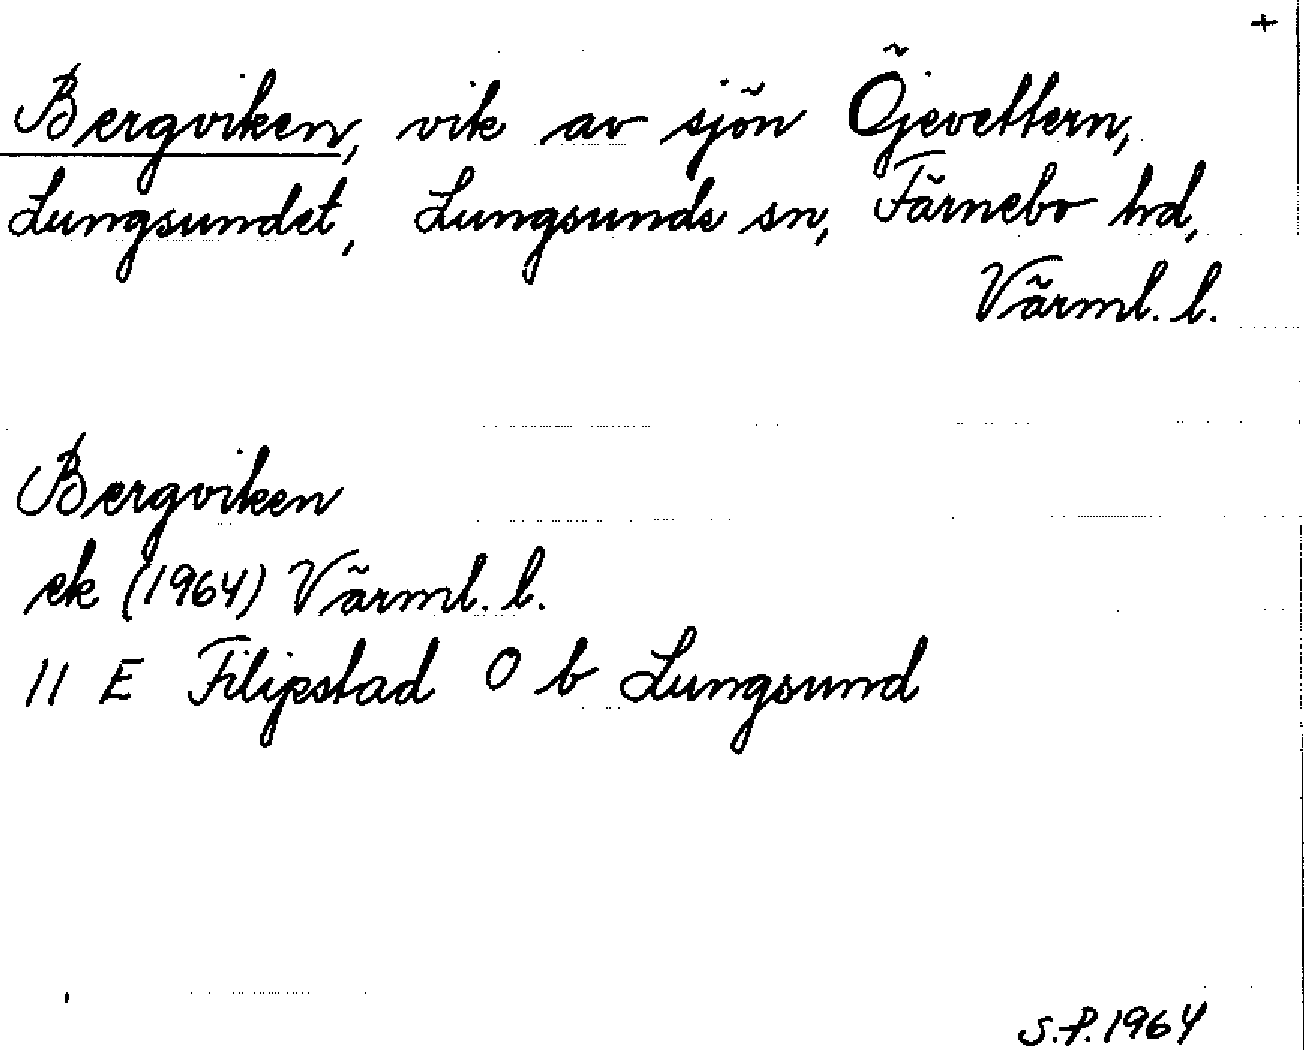 +
Bergviken, vik av sjön Öjevettern,
Lungsundet, Lungsunds sn, Färnebo hd,
Värml. l.
Bergviken
ek (1964) Värml. l.
11 E Filipstad O b Lungsund
S.P. 1964